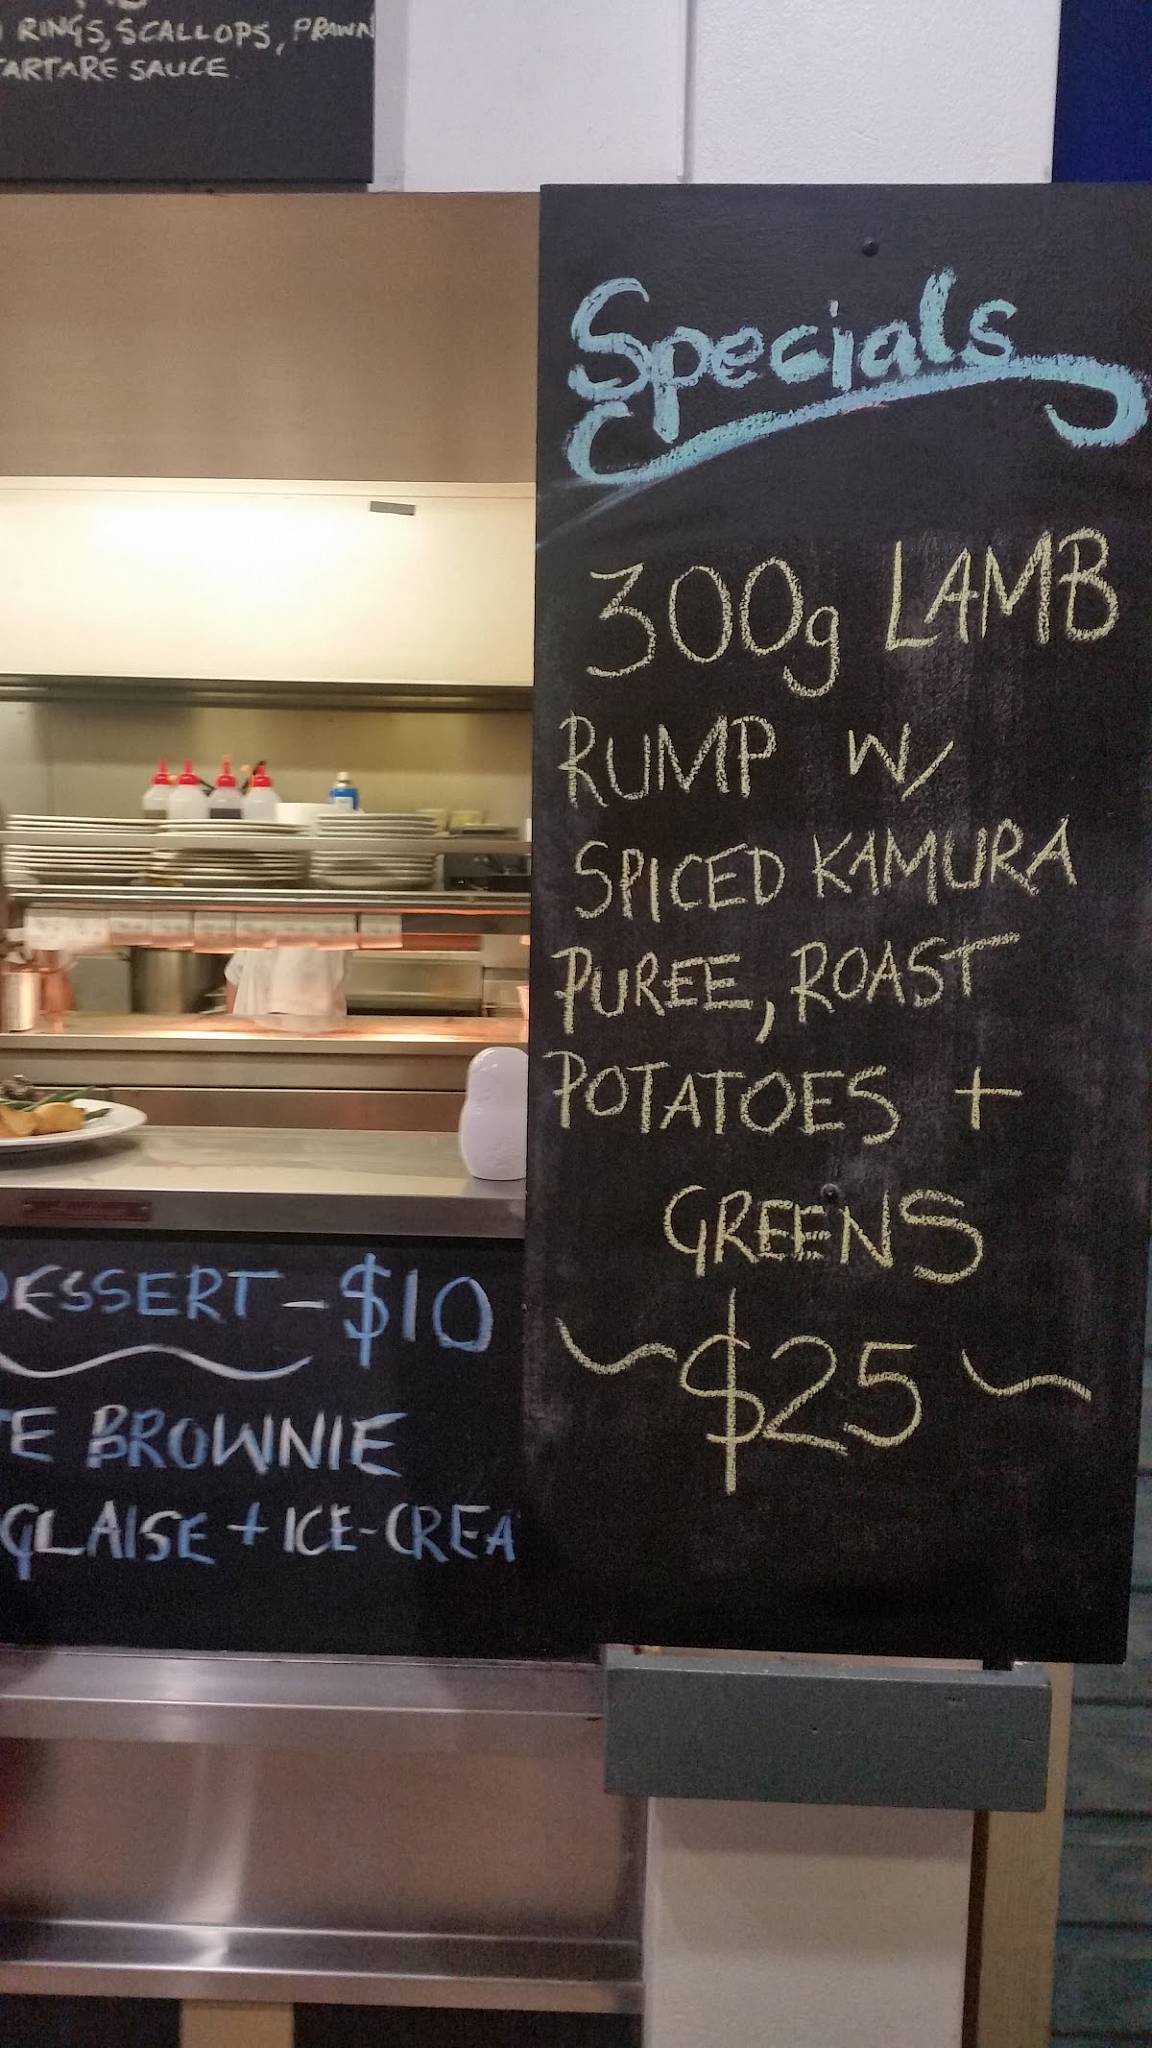 RINGS, SCALLOPS, PRAWN
TARTARE SAUCE
Specials
300g LAMB
RUMP W/
SPICED KAMURA
PUREE, ROAST
POTATOES +
GREENS
~ $25 ~
DESSERT - $10
TE BROWNIE
GLAISE + ICE-CREA